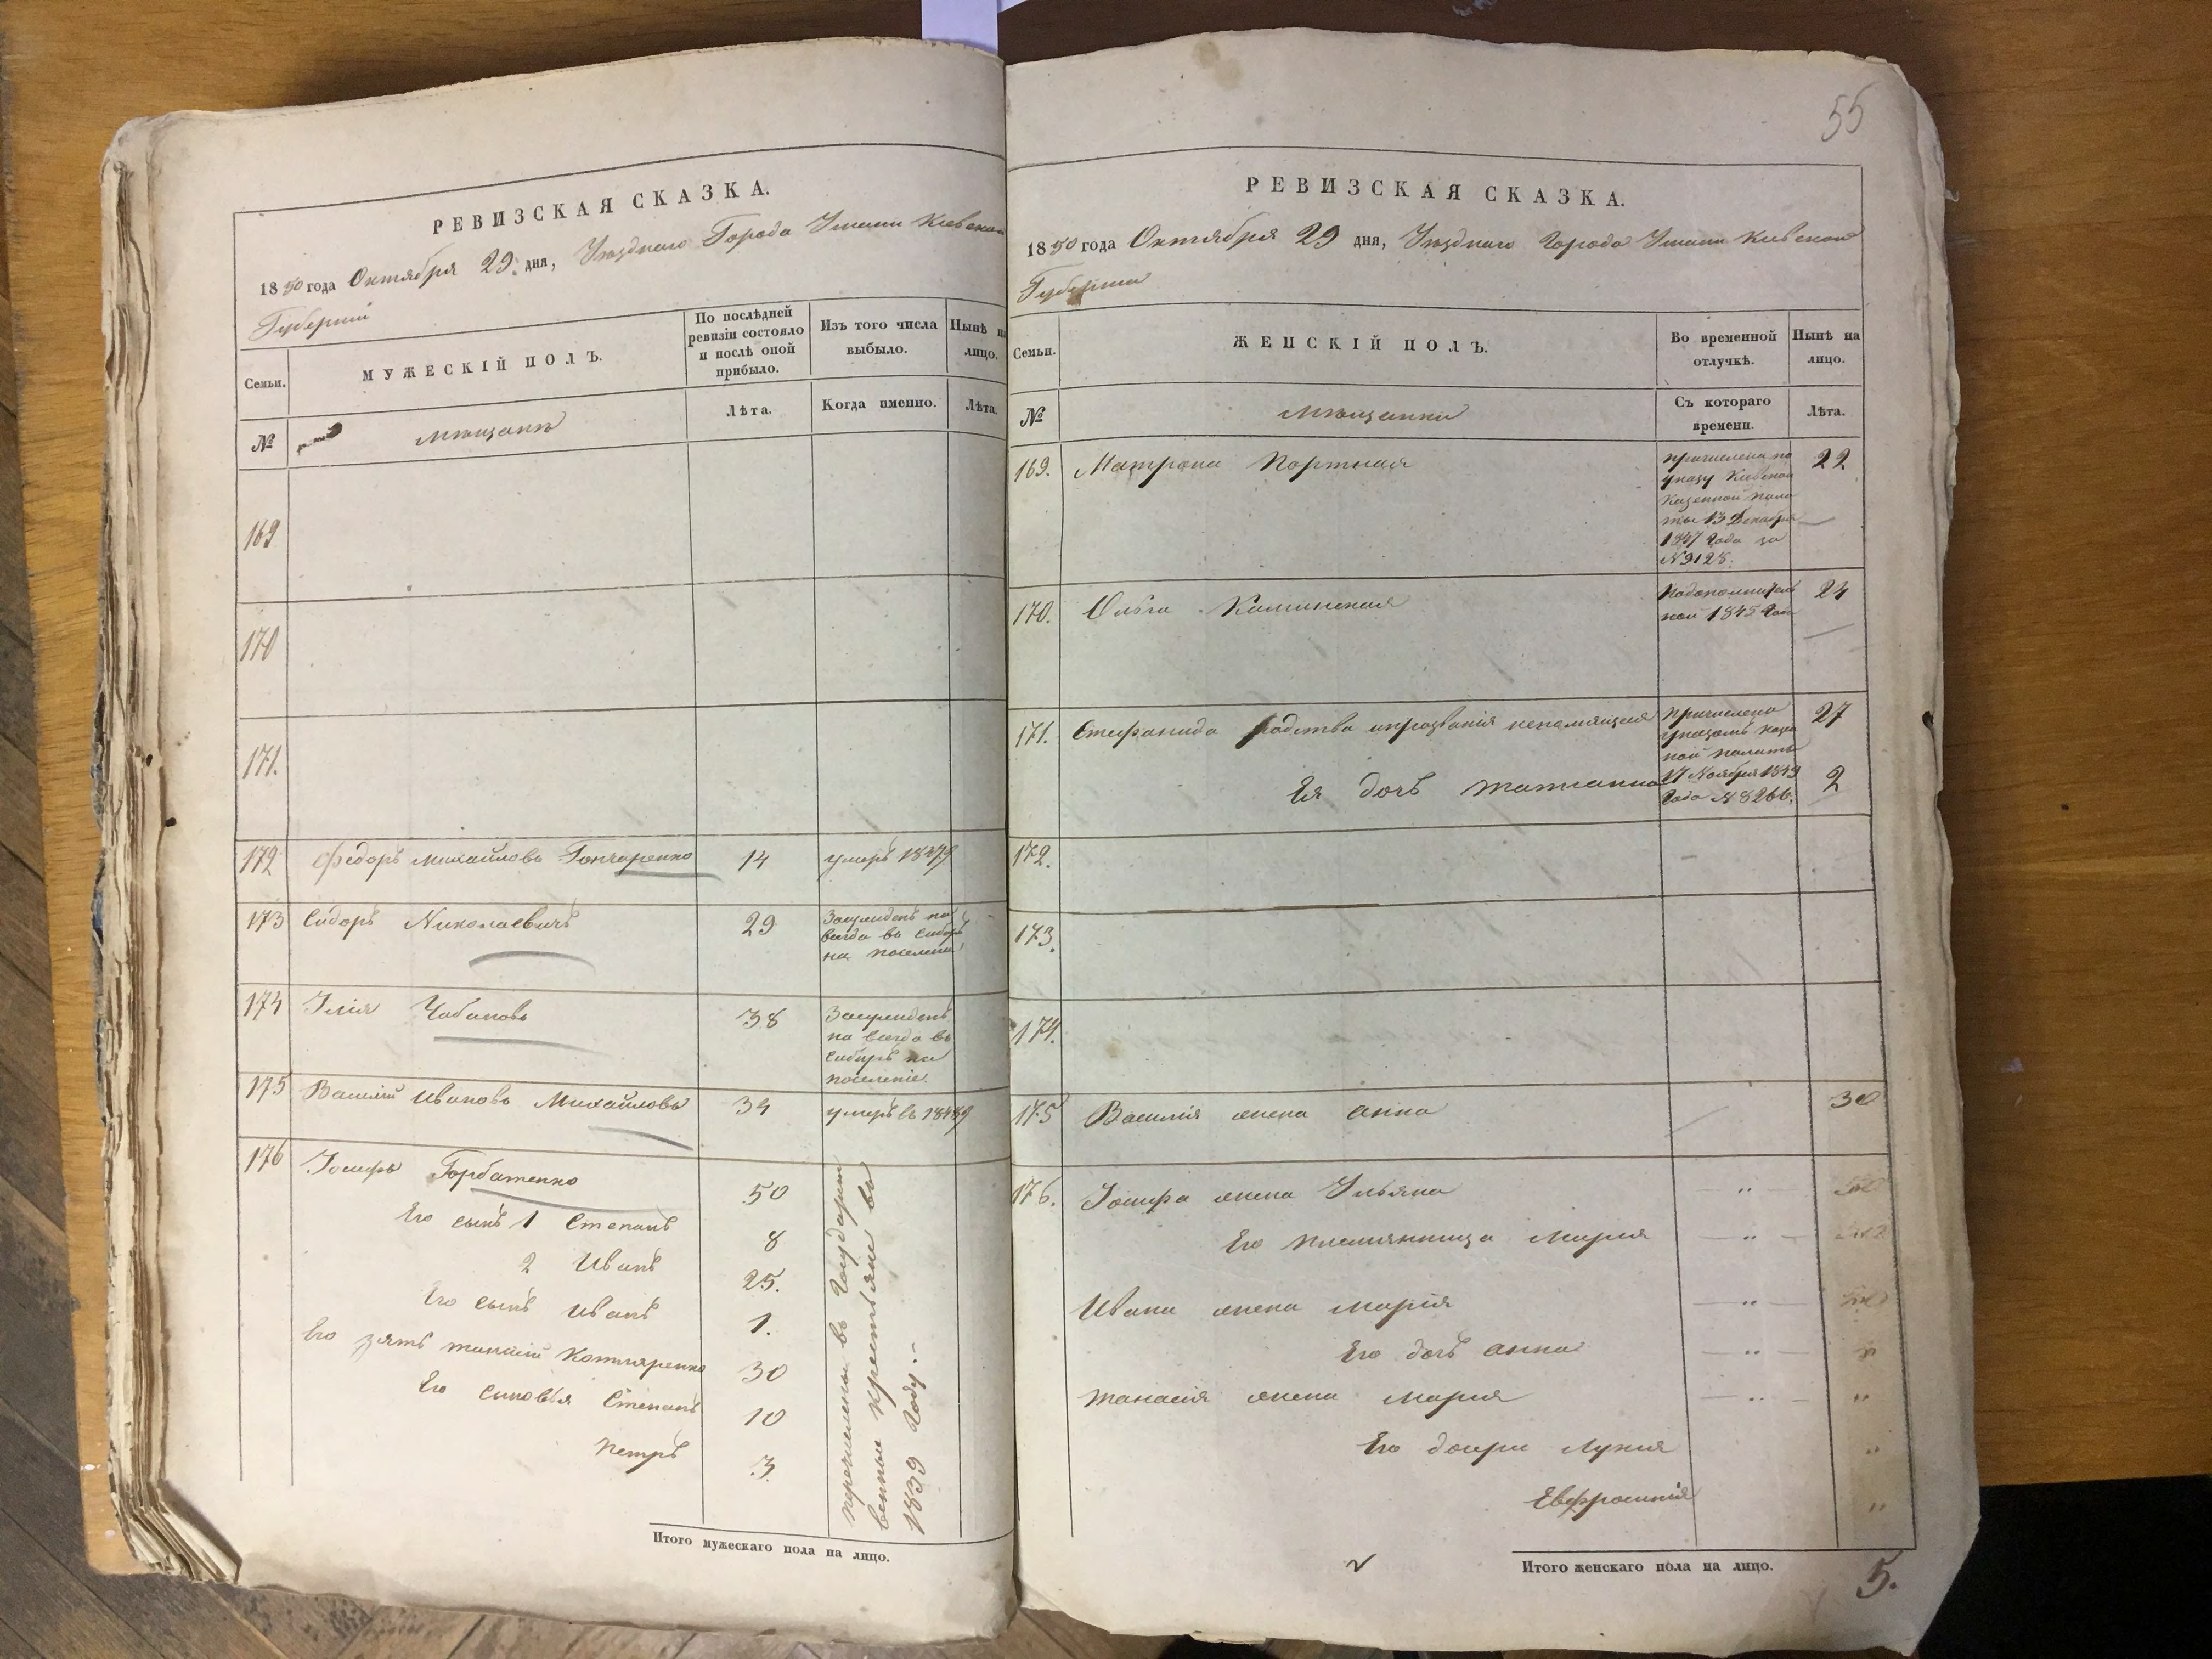 РЕВИЗСКАЯ СКАЗКА.
1850 года Октября 29. дня, Уѣзднаго Города Умани Кіевской
Губерніи
Семьи.
МУЖЕСКІЙ ПОЛЪ.
По послѣдней
ревизіи состояло
и послѣ оной
прибыло.
Изъ того числа
выбыло.
Нынѣ на
лицо.
№
Мѣщане
Лѣта.
Когда именно.
Лѣта.
169
170
171.
172 Федоръ Михайловъ Гончаренко 14 умеръ 1847
173 Сидоръ Николаевичъ 29 Засужденъ на
всегда въ Сибирь
на поселеніе
174 Илія Чабановъ 38 Засужденъ
на всегда въ
Сибирь на
поселеніе.
175 Василій Ивановъ Михайловъ 34 умеръ въ 1848
176 Іосифъ Горбатенко 50
Его сынъ 1 Степанъ 8
2 Иванъ 25.
Его сынъ Иванъ 1.
Его зять Танасій Котляренко 30
Его сыновья Степанъ 10
Петръ 3.
перечислены въ Государст
венные крестьяне въ
1839 году.
Итого мужескаго пола на лицо.
55
РЕВИЗСКАЯ СКАЗКА.
1850 года Октября 29 дня, Уѣзднаго Города Умани Кіевской
Губерніи
Семьи.
ЖЕНСКІЙ ПОЛЪ.
Во временной
отлучкѣ.
Нынѣ на
лицо.
№
Мѣщанки
Съ котораго
времени.
Лѣта.
169. Матрона Портная причислена по 22
указу Кіевской
Казенной пала
ты 13 Декабря
1847 Года за
№9128.
170. Ольга Каминская Подополнитель 24
ной 1845 Года
171. Стефанида родства ипрозванія непомнящая причислена 27
указомъ казен
ной палаты
Ея дочь Татіанна 17 Ноября 1849 2
Года № 8266.
172.
173.
174.
175 Василія жена Анна 30
176. Іосифа жена Ульяна "
Его племянница Мария "
Ивана жена Марія "
Его дочь Анна " "
Танасія жена Мария " "
Его дочери Лукия "
Евфросинія "
Итого женскаго пола на лицо. 5.